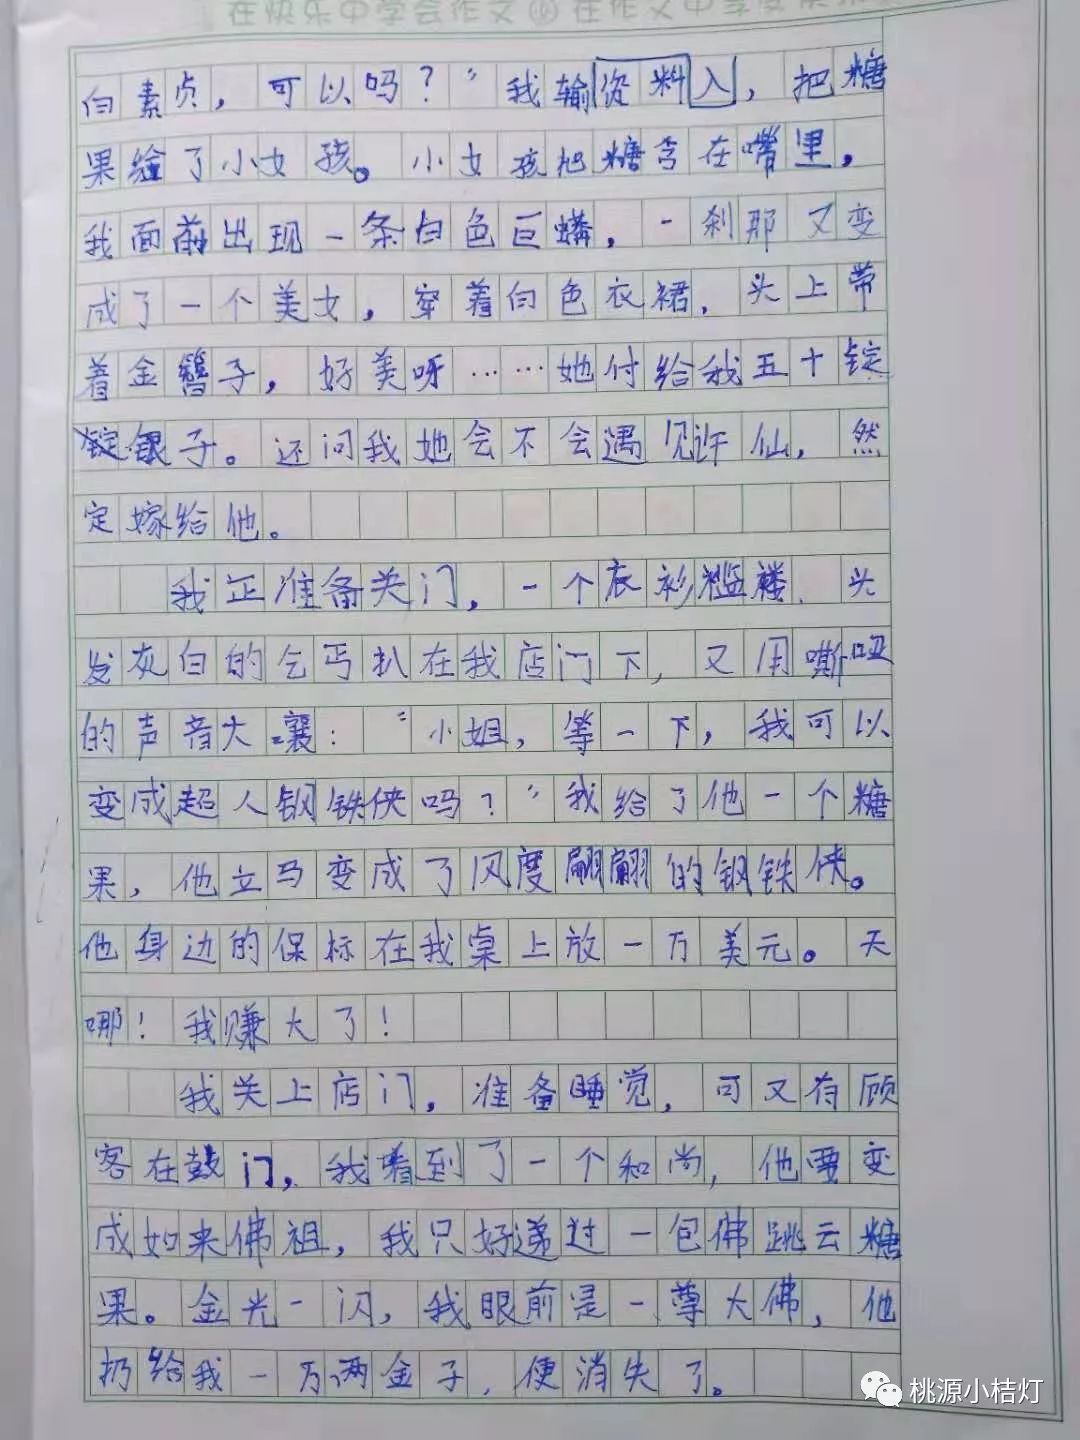 在快乐中学会作文 在作文中学
白素贞，可以吗？”我输资料入，把糖
果给了小女孩。小女孩把糖含在嘴里，
我面前出现一条白色巨蟒，一刹那又变
成了一个美女，穿着白色衣裙，头上带
着金簪子，好美呀……她付给我五十锭
银子。还问我她会不会遇见许仙，然
定嫁给他。
我正准备关门，一个衣衫褴褛、头
发灰白的乞丐趴在我店门下，又用嘶哑
的声音大嚷：“小姐，等一下，我可以
变成超人钢铁侠吗？”我给了他一个糖
果，他立马变成了风度翩翩的钢铁侠。
他身边的保标在我桌上放一万美元。天
哪！我赚大了！
我关上店门，准备睡觉，可又有顾
客在鼓门，我看到了一个和尚，他要变
成如来佛祖，我只好递过一包佛跳云糖
果。金光一闪，我眼前是一尊大佛，他
扔给我一万两金子，便消失了。
桃源小桔灯